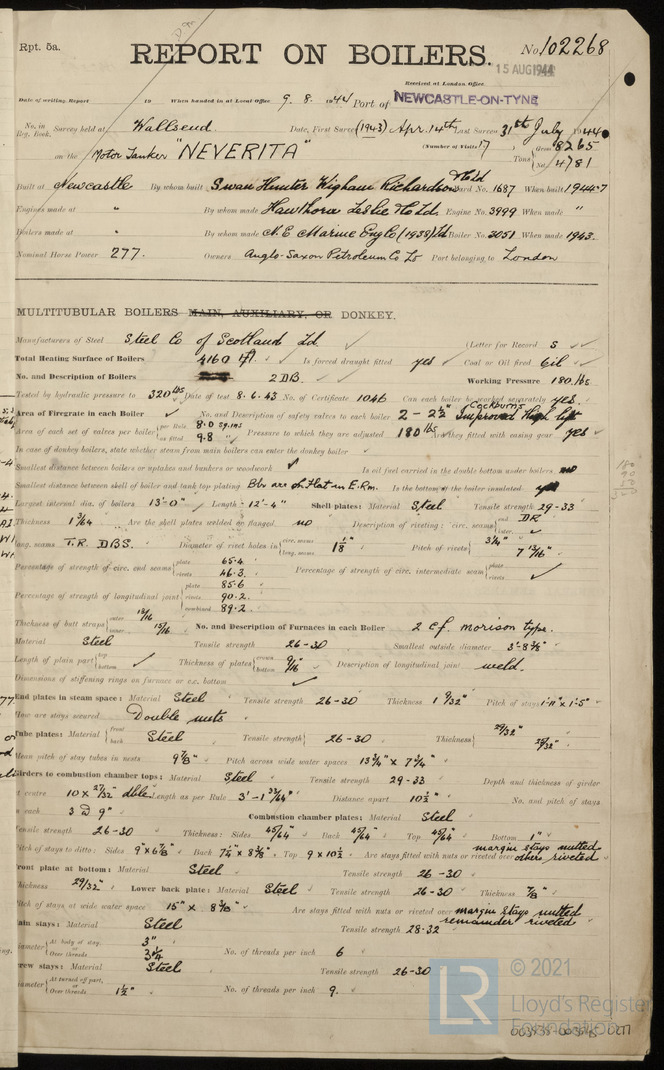 Rpt. 5a.
REPORT ON BOILERS.
No. 102268
15 AUG 1944
Received at London Office
Date of writing Report 19 When handed in at Local Office 9. 8. 1944 Port of NEWCASTLE-ON-TYNE
No. in Reg. Book. Survey held at Wallsend. Date, First Survey (1943) Apr. 14th Last Survey 31st July 1944
(Number of Visits 17) Gross 8265
on the Motor Tanker "NEVERITA" Tons Net 4781
Built at Newcastle By whom built Swan Hunter Wigham Richardson & Co Ld Yard No. 1687 When built 1944-7
Engines made at " By whom made Hawthorn Leslie & Co Ld. Engine No. 3999 When made "
Boilers made at " By whom made N.E. Marine Eng Co (1938) Ld Boiler No. 3051 When made 1943.
Nominal Horse Power 277. Owners Anglo-Saxon Petroleum Co Ld Port belonging to London
MULTITUBULAR BOILERS MAIN, AUXILIARY, OR DONKEY.
Manufacturers of Steel Steel Co of Scotland Ld (Letter for Record S)
Total Heating Surface of Boilers 4160 Is forced draught fitted yes Coal or Oil fired Oil
No. and Description of Boilers 2 DB. Working Pressure 180 lbs
Tested by hydraulic pressure to 320 lbs Date of test 8. 6. 43 No. of Certificate 1046 Can each boiler be worked separately yes.
Area of Firegrate in each Boiler No. and Description of safety valves to each boiler 2 - 2½" Cockburns Improved High lift
Area of each set of valves per boiler per Rule 8.0 sq. ins as fitted 9.8 " Pressure to which they are adjusted 180 lbs Are they fitted with easing gear yes
In case of donkey boilers, state whether steam from main boilers can enter the donkey boiler
Smallest distance between boilers or uptakes and bunkers or woodwork Is oil fuel carried in the double bottom under boilers no
Smallest distance between shell of boiler and tank top plating Blrs are on Flat in E.Rm. Is the bottom of the boiler insulated yes
Largest internal dia. of boilers 13'-0" Length 12'-4" Shell plates: Material Steel Tensile strength 29-33
Thickness 1 3/64 Are the shell plates welded or flanged no Description of riveting: circ. seams end DR inter.
long. seams T.R. D.B.S. Diameter of rivet holes in circ. seams long. seams 1 1/8" Pitch of rivets 3¾" 7 13/16"
Percentage of strength of circ. end seams plate 65.4 rivets 46.3 Percentage of strength of circ. intermediate seam plate rivets
Percentage of strength of longitudinal joint plate 85.6 rivets 90.2 combined 89.2
Thickness of butt straps outer 13/16 inner 15/16 No. and Description of Furnaces in each Boiler 2 Cf. morison type.
Material Steel Tensile strength 26-30 Smallest outside diameter 3'-8⅜"
Length of plain part top bottom Thickness of plates crown bottom 9/16" Description of longitudinal joint weld.
Dimensions of stiffening rings on furnace or c.c. bottom
End plates in steam space: Material Steel Tensile strength 26-30 Thickness 1 9/32" Pitch of stays 1'-11" x 1'-5"
How are stays secured Double nuts
Tube plates: Material front back Steel Tensile strength 26-30 Thickness 29/32" 25/32"
Mean pitch of stay tubes in nests 9⅞" Pitch across wide water spaces 13¾" x 7¼"
Girders to combustion chamber tops: Material Steel Tensile strength 29-33 Depth and thickness of girder
at centre 10 x 27/32" dble Length as per Rule 3'-1 33/64" Distance apart 10½" No. and pitch of stays
in each 3 @ 9" Combustion chamber plates: Material Steel
Tensile strength 26-30 Thickness: Sides 45/64" Back 45/64" Top 45/64" Bottom 1"
Pitch of stays to ditto: Sides 9" x 6⅞" Back 7¼" x 8⅜" Top 9 x 10½ Are stays fitted with nuts or riveted over margin stays nutted others riveted
Front plate at bottom: Material Steel Tensile strength 26-30
Thickness 29/32" Lower back plate: Material Steel Tensile strength 26-30 Thickness ⅞"
Pitch of stays at wide water space 15" x 8⅜" Are stays fitted with nuts or riveted over margin stays nutted remainder riveted
Main stays: Material Steel Tensile strength 28-32
Diameter At body of stay, or Over threads 3" 3¼ No. of threads per inch 6
Screw stays: Material Steel Tensile strength 26-30
Diameter At turned off part, or Over threads 1½" No. of threads per inch 9.
© 2021
Lloyd's Register
Foundation